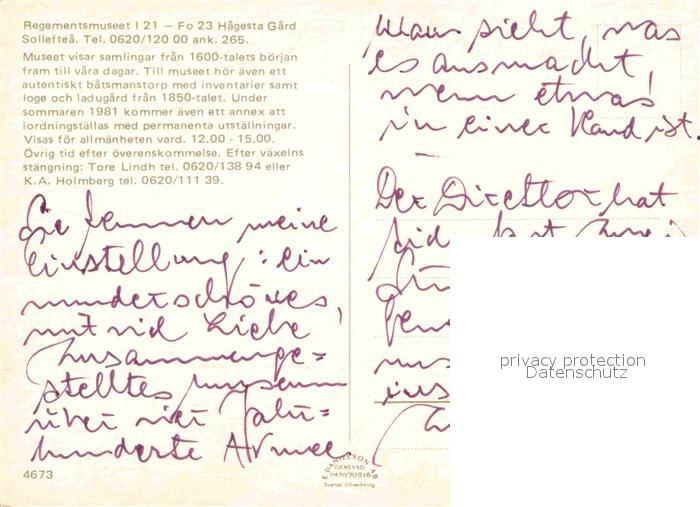 Regementsmuseet I 21 – Fo 23 Hågesta Gård
Sollefteå. Tel. 0620/120 00 ank. 265.
Museet visar samlingar från 1600-talets början
fram till våra dagar. Till museet hör även ett
autentiskt båtsmanstorp med inventarier samt
loge och ladugård från 1850-talet. Under
sommaren 1981 kommer även ett annex att
iordningställas med permanenta utställningar.
Visas för allmänheten vard. 12.00 - 15.00.
Övrig tid efter överenskommelse. Efter växelns
stängning: Tore Lindh tel. 0620/138 94 eller
K.A. Holmberg tel. 0620/111 39.
Sie kennen meine
Einstellung: ein
wunderschönes,
mit viel Liebe
zusammenge=
stelltes Museum
über vier Jahr=
hunderte Armee.
4673
Man sieht, was
es ausmacht,
wenn etwas
in einer Hand ist.
Der Direktor hat
privacy protection
Datenschutz
E. DANIELSON AB
GENEVAD
0430/70918
Svensk tillverkning